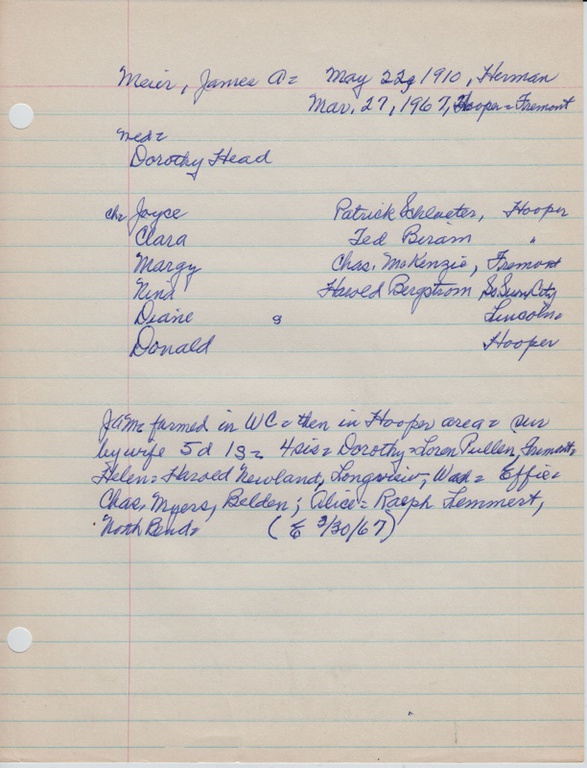 Meier, James A= May 22, 1910, Herman
Mar. 27, 1967, Hooper = Fremont
med=
Dorothy Head
ch= Joyce Patrick Schlueter, Hooper
Clara Ted Beram "
Margy Chas. McKenzie, Fremont
Nina Harold Bergstrom So Sioux City
Diane s Lincoln
Donald Hooper
JAM= farmed in WC= then in Hooper area= sur
by wife 5d 1s= 4 sis= Dorothy=Loren Pullen, Fremont=
Helen= Harold Newland, Longview, Wash= Effie=
Chas. Myers, Belden; Alice= Ralph Lemmert,
North Bend= (E 3/30/67)